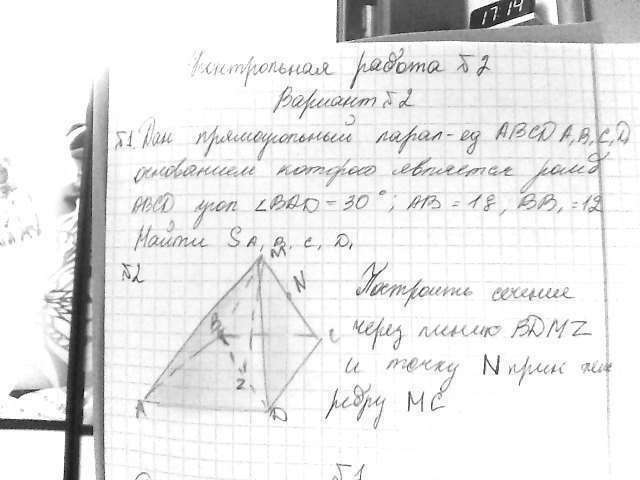 17:14
Контрольная работа №2
Вариант №2
№1. Дан прямоугольный парал-ед ABCDA₁B₁C₁D₁
основанием которого является ромб
ABCD угол ∠BAD = 30°; AB = 18, BB₁ = 12
Найти S A₁B₁C₁D₁
№2
M
N
Построить сечение
B
C
через линию BDMZ
Z
и точку N прин
A
D
ребру MC
№1